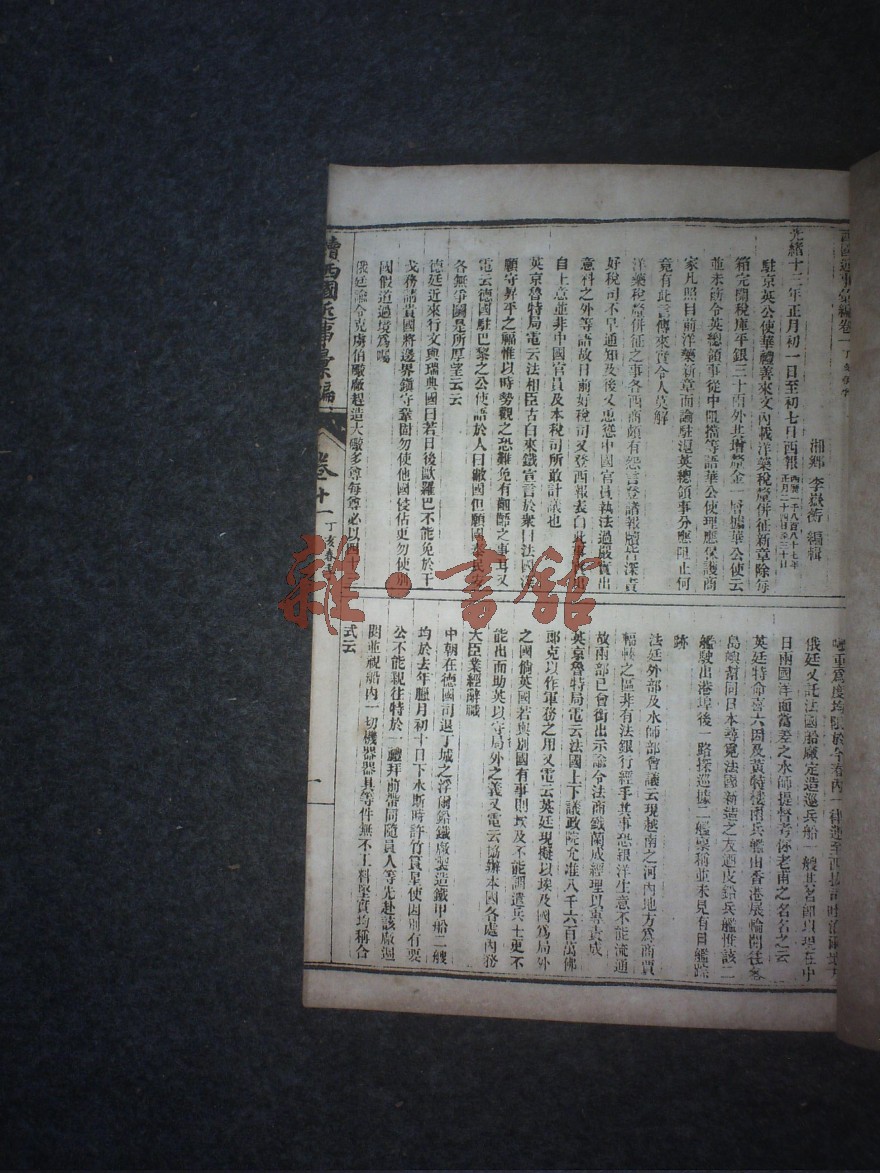 西國近事彙編卷一丁亥春季
湘鄉 李嶽蘅 編輯
光緒十三年正月初一日至初七日西報西曆一千八百八十七年正月二十四日至三十日
駐京英公使華禮善來文內載洋藥稅釐併征新章除每
箱完關稅庫平銀三十兩外其增釐金一層據華公使云
並未飭令英總領事從中阻擋等語華公使理應保護商
家凡照目前洋藥新章而論駐滬英總領事分應阻止何
竟有此言傳來實令人莫解
洋藥稅釐併征之事各西商頗有怨言登諸報牘皆深責
好稅司不早通知及後又慫慂中國官員執法過嚴實出
意料之外等語故日前好稅司又登西報表白此事係出
自上意並非中國官員及本稅司所敢計議也
英京魯特局電云法相臣古白來鐵宣言於衆曰法國深
願守昇平之福惟以時勢觀之恐難免有齟齬之事耳又
電云德國駐巴黎之公使語於人曰敝國但願國泰民安
各無爭鬪是所厚望云云
德廷近來行文與瑞典國曰若日後歐羅巴不能免於干
戈務請貴國將邊界鎭守鞏固勿使他國侵佔更勿使別
國假道過境爲囑
俄廷諭令克虜伯礮廠趕造大礮多尊每尊必以四十
俄廷又託法國船廠定造巡兵船一艘其名卽以現在中
日兩國洋面當差之水師提督考係老甫之名名之云
英廷特命喜六因及黃特樓兩兵艦由香港展輪開往各
島嶼幫同日本尋覓法國新造之友迺皮鉛兵艦惟該二
艦駛出港埠後一路探巡據二艦稟稱並未見有日艦踪
跡
法廷外部及水師部會議云現越南之河內地方爲商賈
輻輳之區非有法銀行經手其事恐銀洋生意不能流通
故兩部已會銜出示諭令法商鐵蘭成經理以專責成
英京魯特局電云法國上下議政院允准八千六百萬佛
郎克以作軍務之用又電云英廷現擬以埃及國爲局外
之國倘英國若與別國有事則埃及不能調遣兵士更不
能出而助英以守局外之義又電云協辦本國各處內務
大臣業經辭職
中朝在德國司退丁城之浮爾鉛鐵廠製造鐵甲船二艘
均於去年臘月初十日下水斯時許竹篔星使因別有要
公不能親往特於一禮拜前帶同隨員人等先赴該廠週
閱並視船內一切機器器具等件無不工料堅實均稱合
式云
續西國近事彙編 卷十一 丁亥春季
一
雜·書館